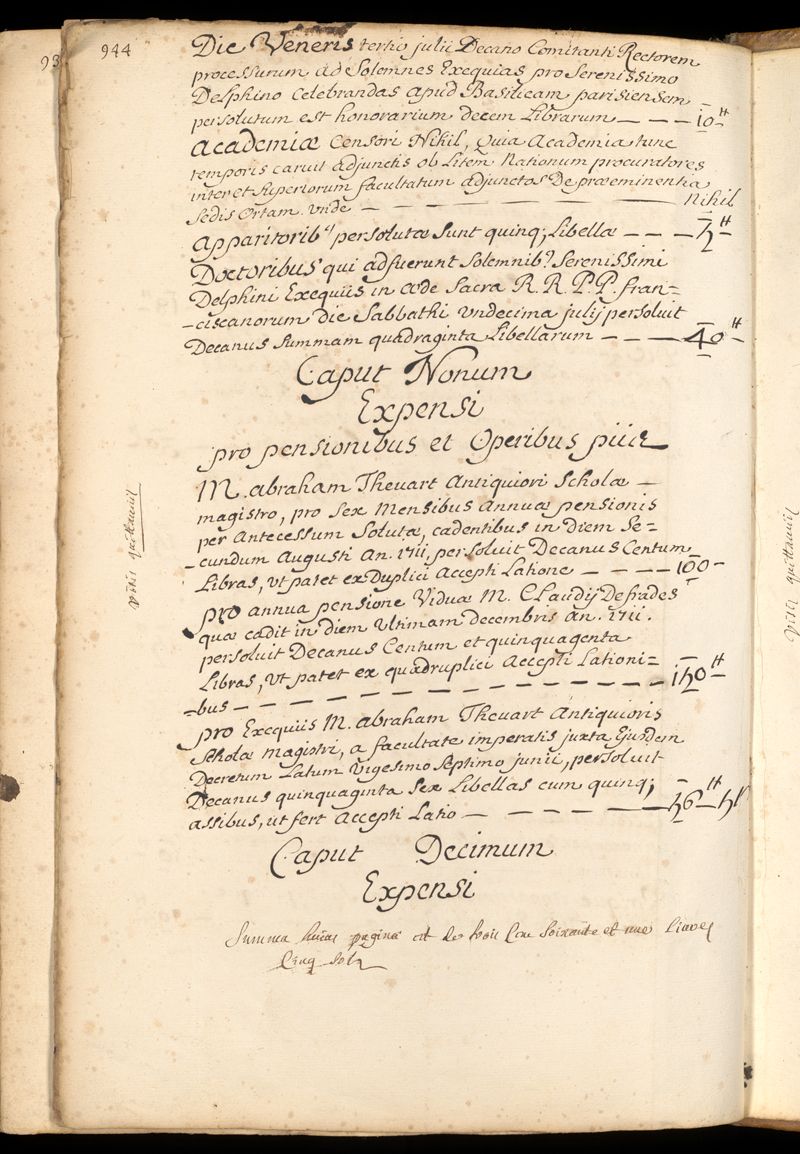 944
93
Die Veneris tertio julii Decano Comitanti Rectorem
processurum ad Solemnes Exequias pro Serenissimo
Delphino Celebrandas apud Basilicam parisiensem
persolutum est honorarium decem Librarum — — — 10 ͭͭ
Academiæ Censori Nihil, Quia Academia tunc
temporis caruit adjunctis ob Litem Nationum procuratores
inter et Superiorum facultatum adjunctos De præeminentia
Sedis Ortam. Vnde — — — — — — Nihil
Apparitorib9 persolutæ Sunt quinq; Libellæ — — — 5 ͭͭ
Doctoribus qui adfuerunt Solemnib9 Serenissimi
Delphini Exequiis in æde Sacra R. R. P. P. fran=
-ciscanorum die Sabbathi Vndecima julij persoluit
Decanus Summam quadraginta Libellarum — — — 40 ͭͭ
Caput Nonum
Expensi
pro pensionibus et Operibus piis
M. abraham Thevart Antiquiori Scholæ —
magistro, pro Sex Mensibus Annuæ pensionis
per Antecessum Solutæ, cadentibus in Diem Se=
-cundum Augusti An. 1711, persoluit Decanus Centum
Libras, Vt patet ex Duplici Accepti Latione — — — — 100 -
pro annua pensione Viduæ M. Claudij Defrades
quæ cadit in diem Vltimam decembris an. 1711.
persoluit Decanus Centum et quinquagenta
Libras, Vt patet ex quadruplici Accepti Lationi=
-bus — — — — — — — — — — 150 ͭͭ
pro Exequiis M. abraham Thevart Antiquioris
Scholæ Magistri, a facultate imperatis juxta Ejusdem
Decretum Latum Vigesimo Septimo junii, persoluit
Decanus quinquaginta Sex Libellas cum quinq;
assibus, ut fert Accepti Latio — — — — — 56 ͭͭ 5ˢ
Caput Decimum
Expensi
Summa huius paginæ est de trois Cent Soixante et une Livres
Cinq Solz